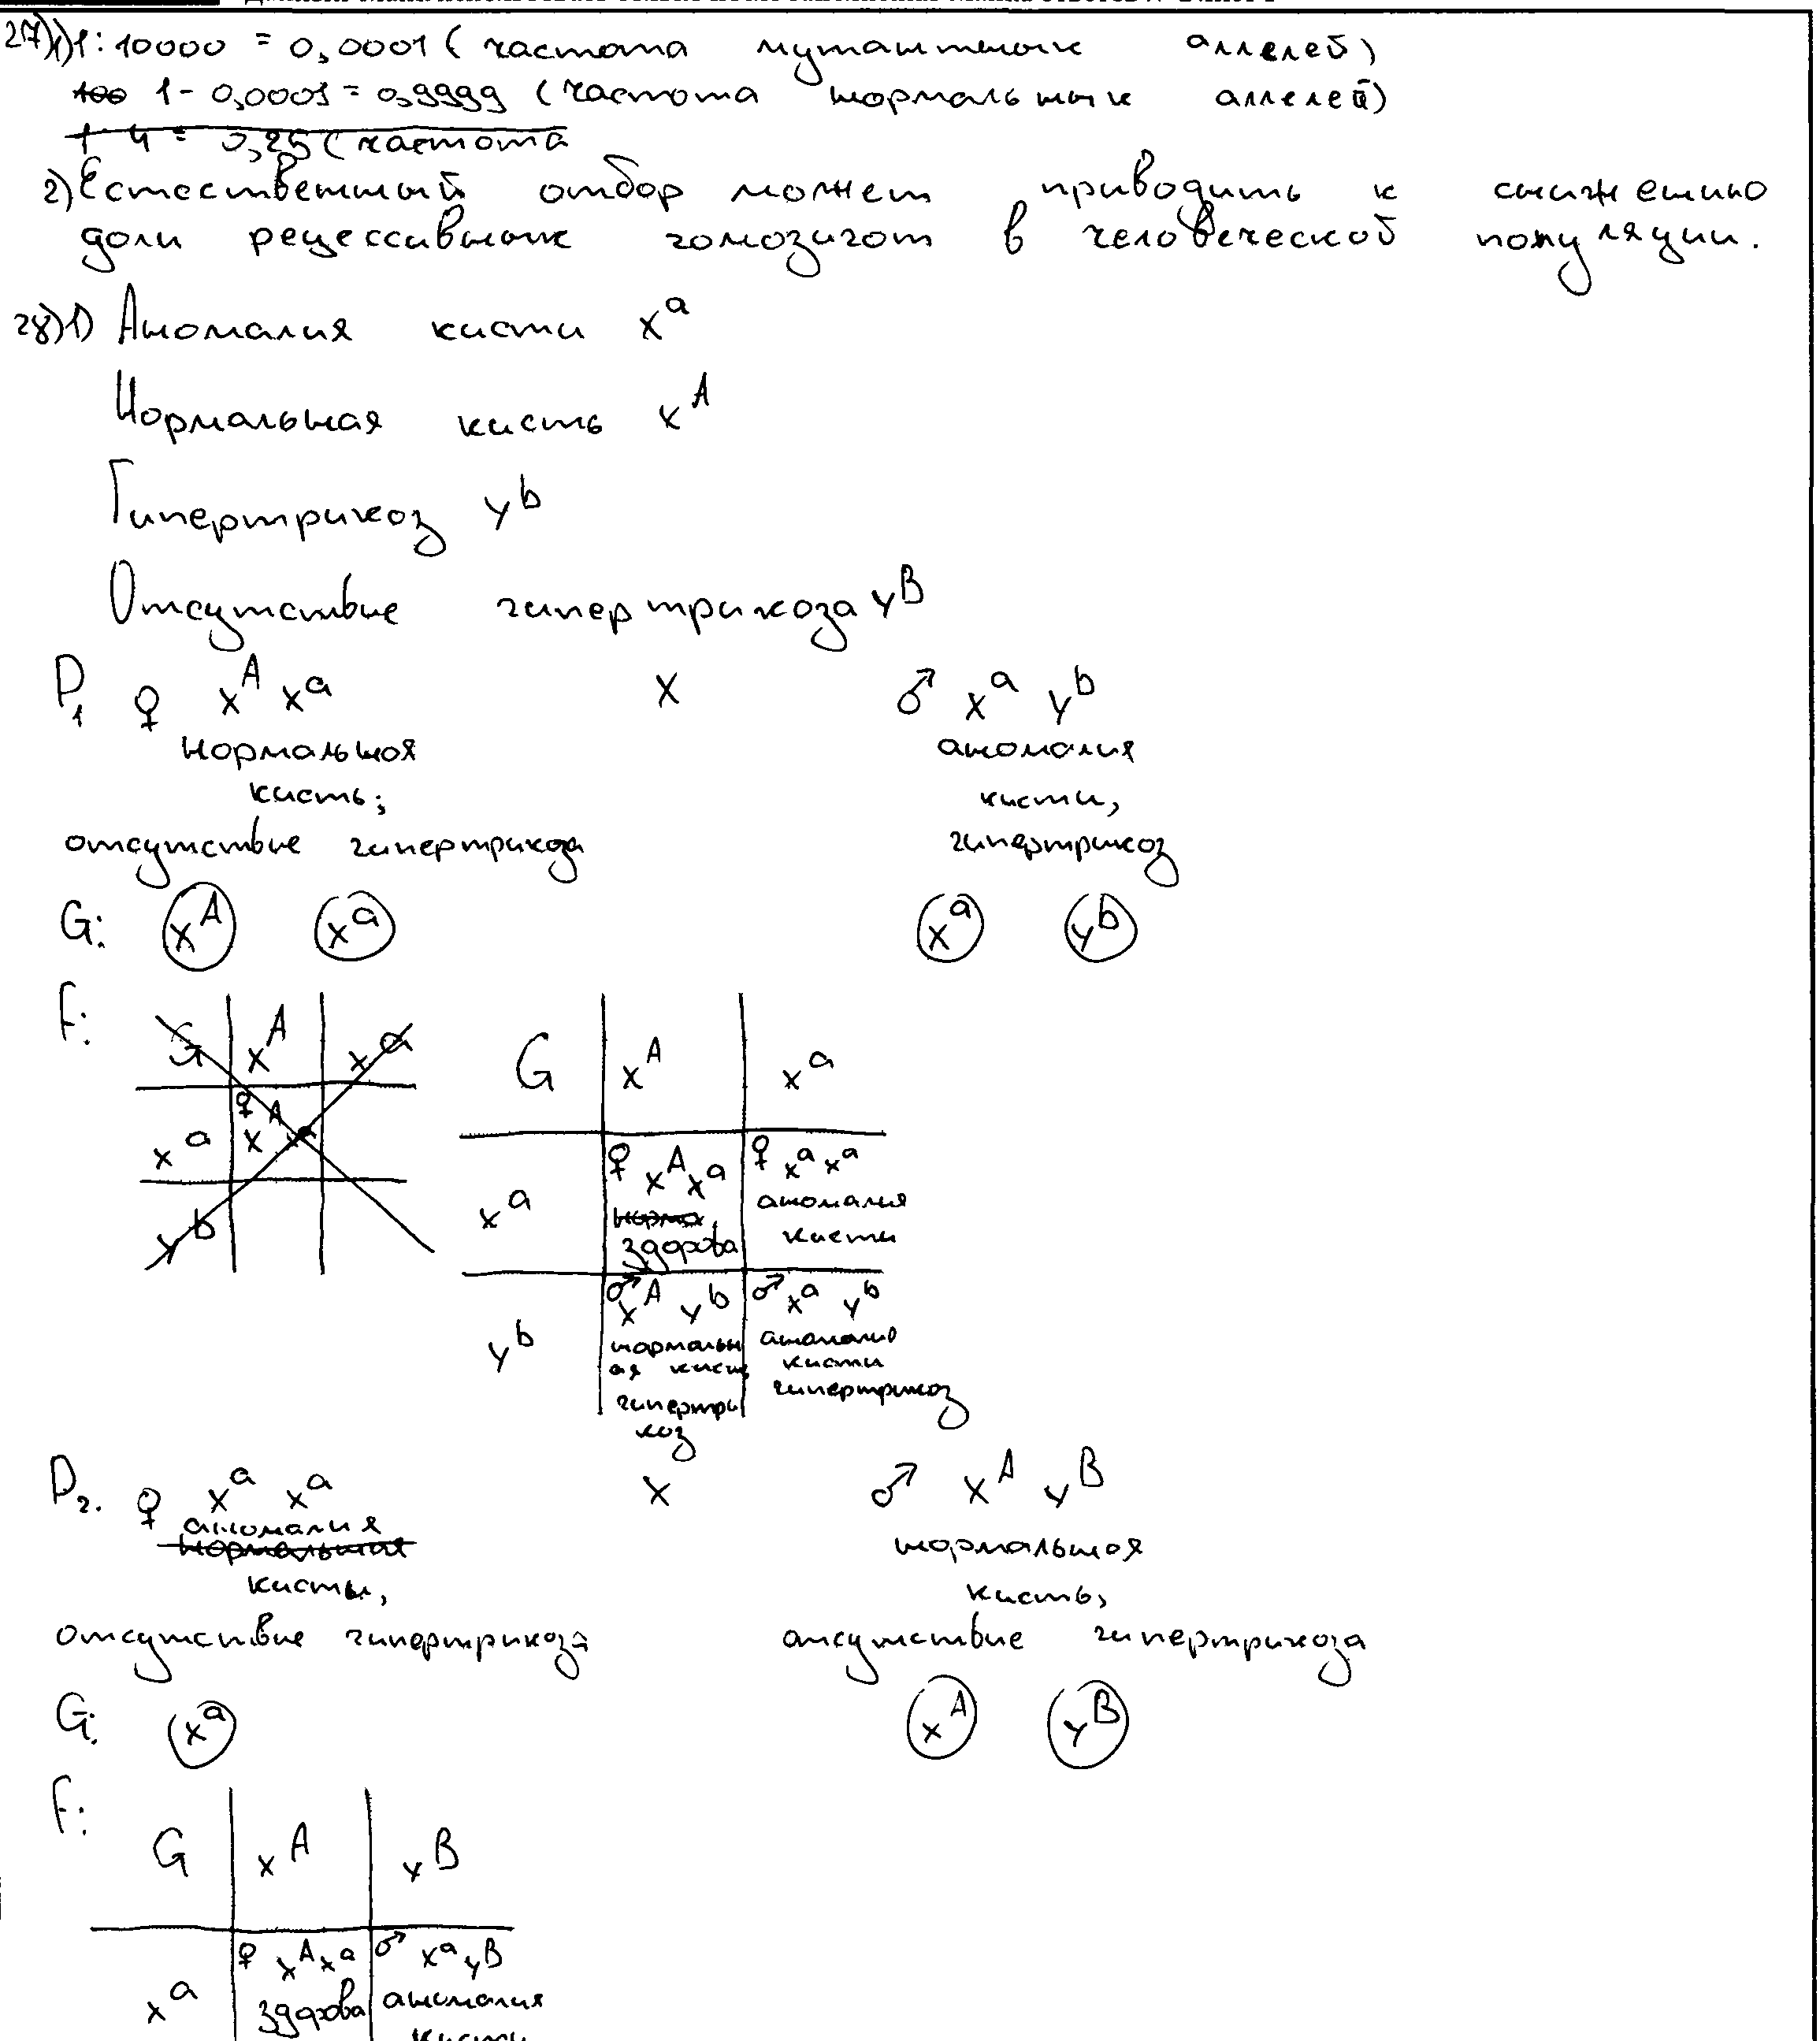 27)1)1:10000 = 0,0001 (частота мутантных аллелей)
100 1-0,0001 = 0,9999 (частота нормальных аллелей)
1 4 = 0,25 (частота
2) Естественный отбор может приводить к снижению
доли рецессивных гомозигот в человеческой популяции.
28)1) Аномалия кисти x^a
Нормальная кисть x^A
Гипертрихоз y^b
Отсутствие гипертрихоза y^B
P1 ♀ x^A x^a x ♂ x^a y^b
нормальная аномалия
кисть; кисти,
отсутствие гипертрихоза гипертрихоз
G: x^A x^a x^a y^b
F: G x^A x^a
x^a ♀ x^A x^a
y^b
G x^A x^a
x^a ♀ x^A x^a норма, здорова ♀ x^a x^a аномалия кисти
y^b ♂ x^A y^b нормальная кисть гипертрихоз ♂ x^a y^b аномалия кисти гипертрихоз
P2. ♀ x^a x^a x ♂ x^A y^B
аномалия
нормальная нормальная
кисть, кисть,
отсутствие гипертрихоза отсутствие гипертрихоза
G: x^a x^A y^B
F:
G x^A y^B
x^a ♀ x^A x^a здорова ♂ x^a y^B аномалия кисти